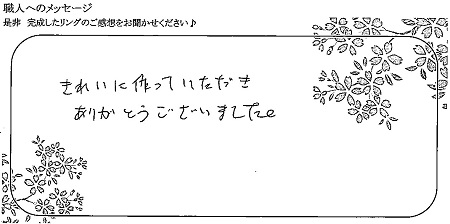 職人へのメッセージ
是非 完成したリングのご感想をお聞かせください♪
きれいに作っていただき
ありがとうございました。